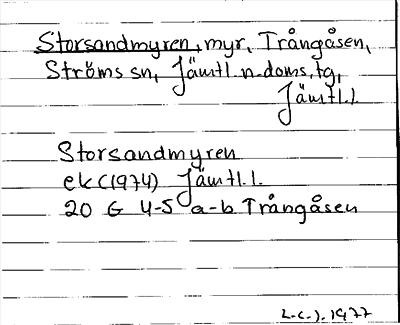 Storsandmyren, myr, Trångåsen,
Ströms sn, Jämtl. n. doms. tg,
Jämtl. l.
Storsandmyren
ek (1974) Jämtl. l.
20 G 4-5 a-b Trångåsen
L-C. J. 1977